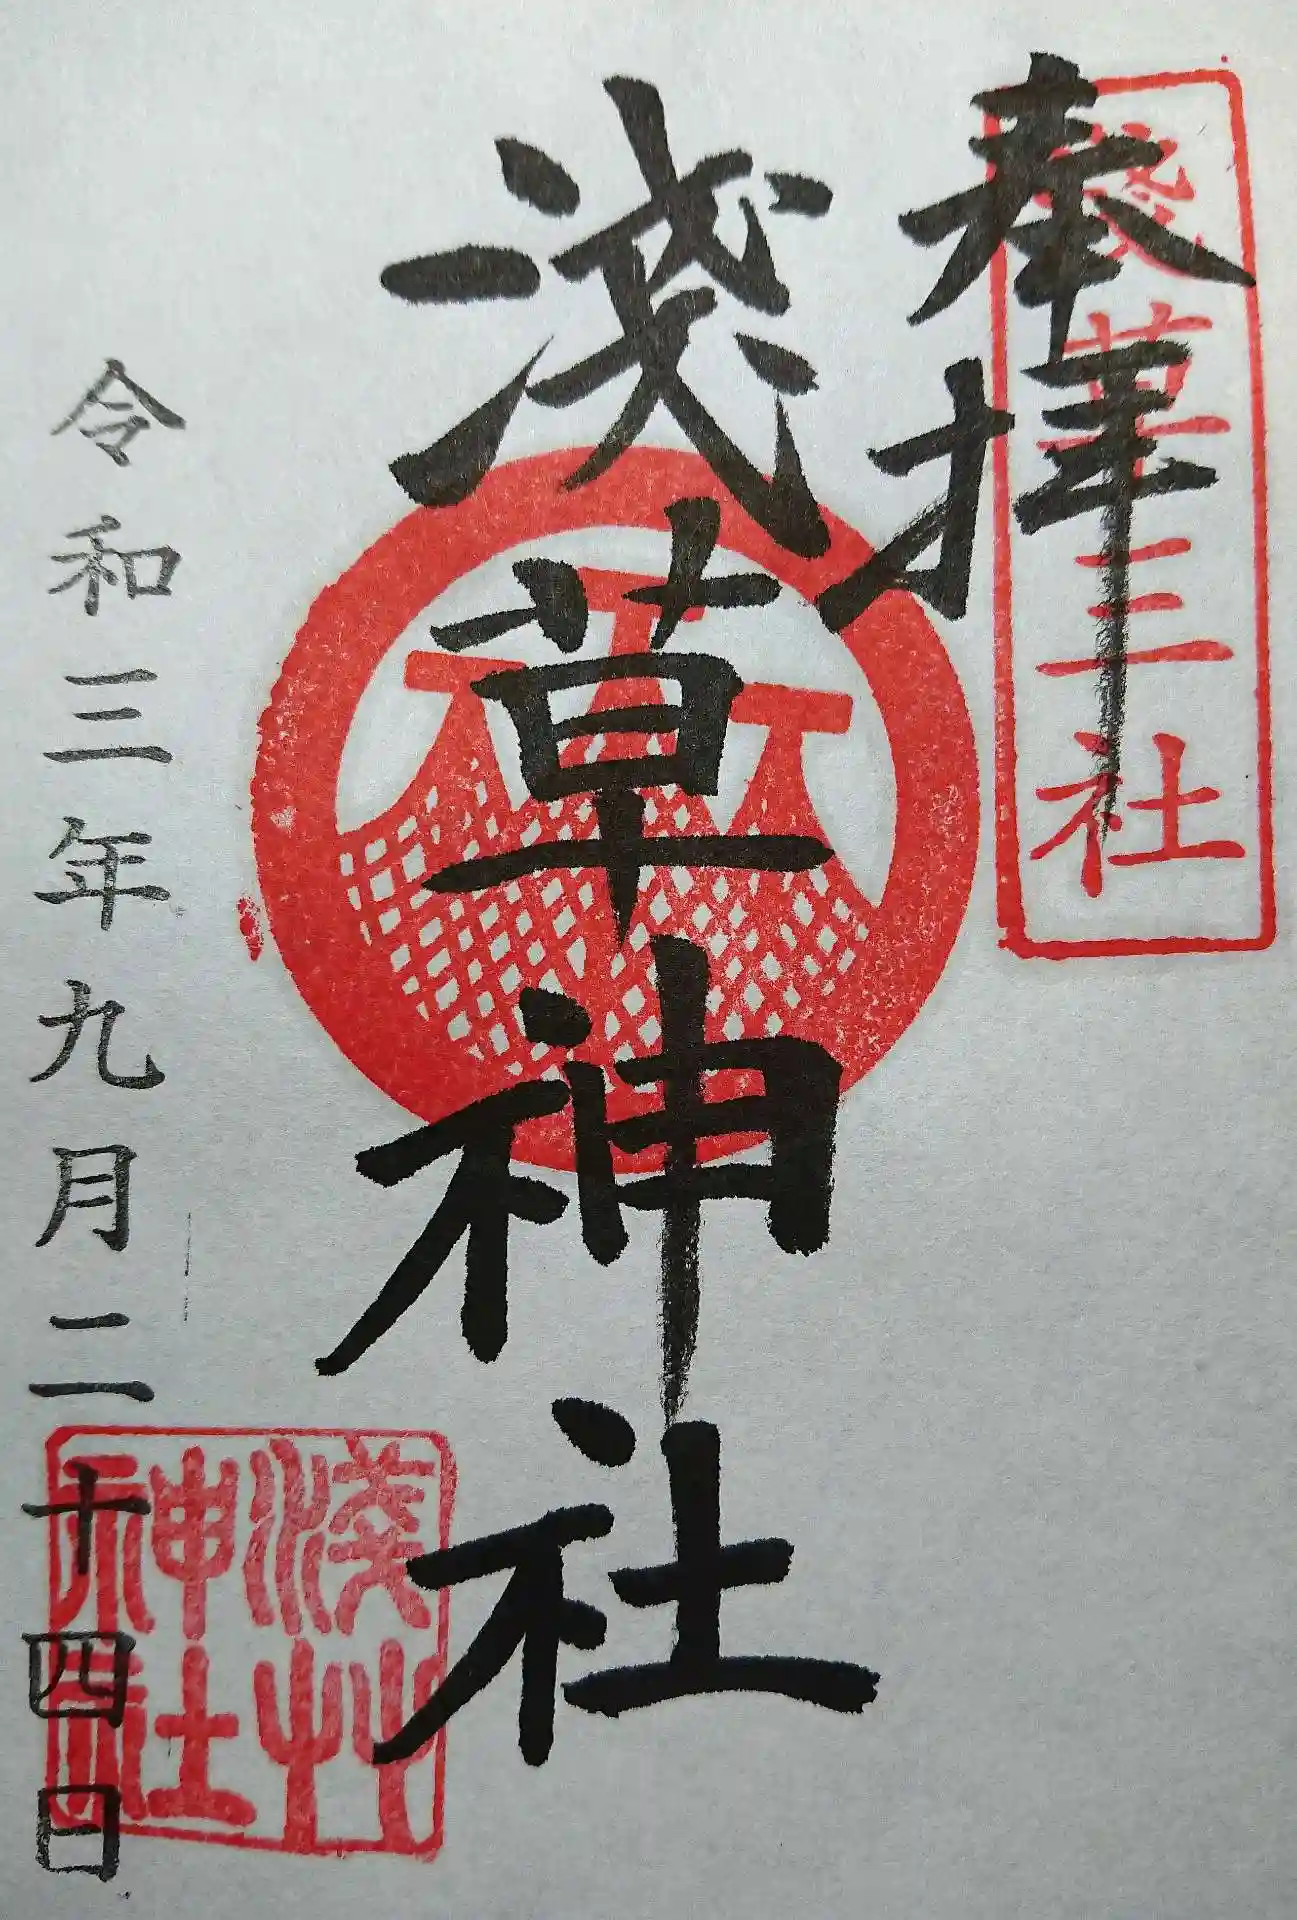 奉拝
淺草三社
淺草神社
令和三年九月二十四日
淺艸
神社